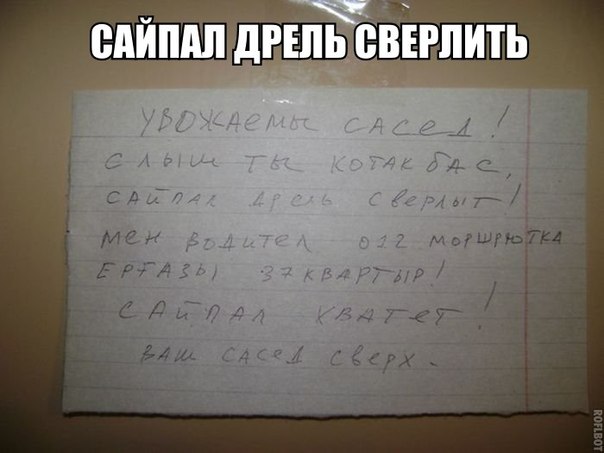 САЙПАЛ ДРЕЛЬ СВЕРЛИТЬ
УВОЖАЕМЫ САСЕД!
СЛЫШ ТЫ КОТАКБАС,
САЙПАЛ ДРЕЛЬ СВЕРЛЫТ!
МЕН ВОДИТЕЛ 012 МОРШРЮТКА
ЕРҒАЗЫ 37 КВАРТЫР!
САЙПАЛ ХВАТЕТ!
ВАШ САСЕД СВЕРХ.
ROFLBOT